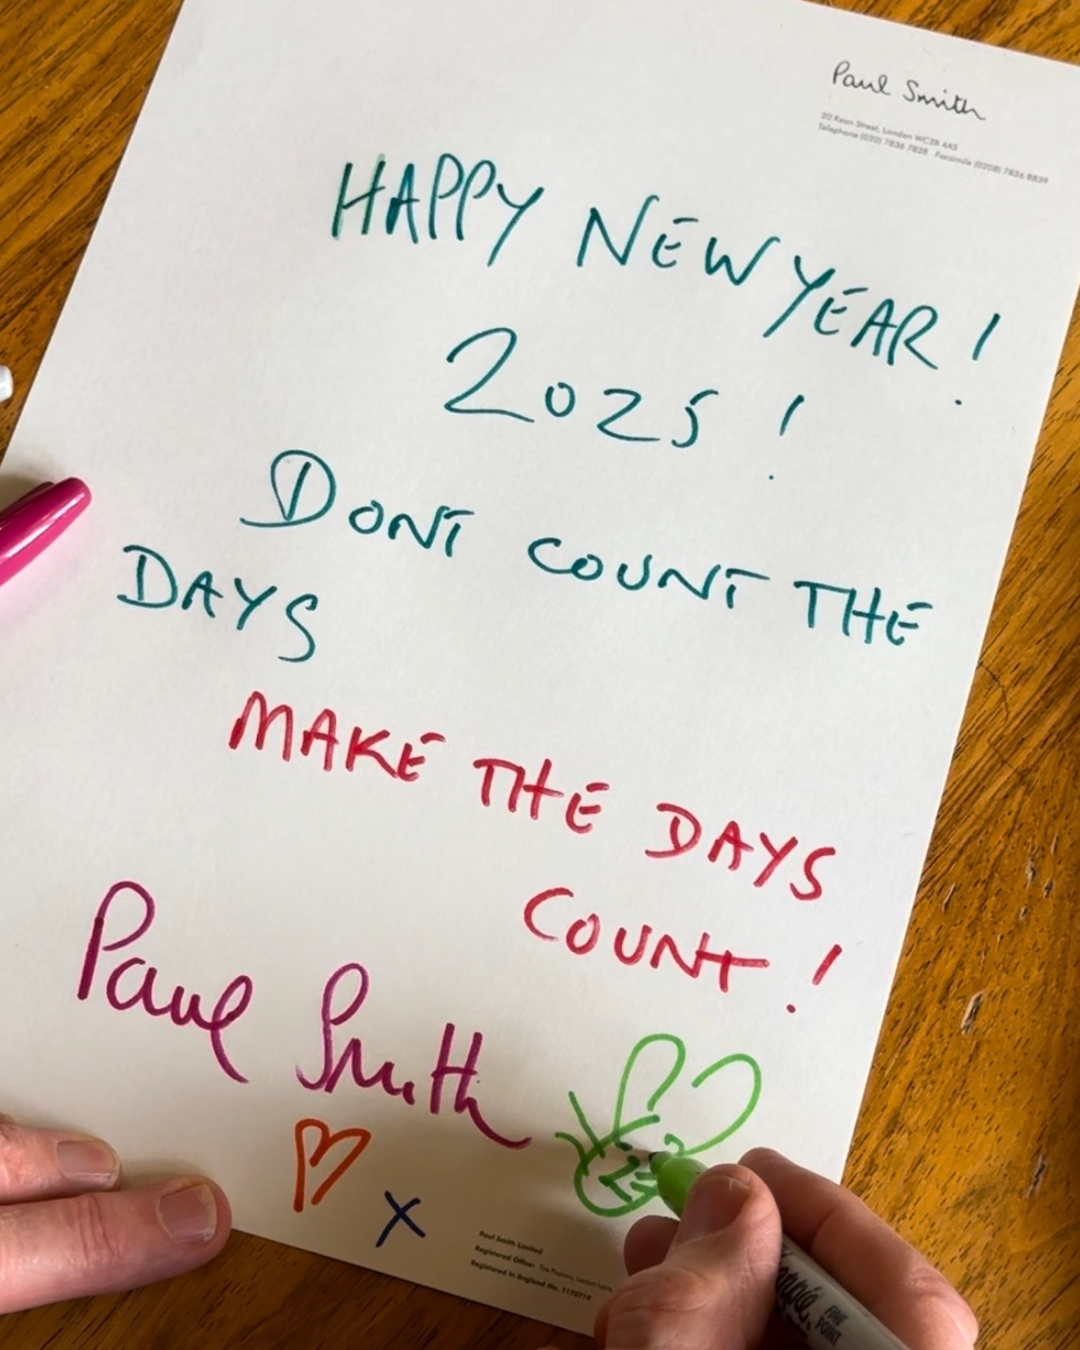 Paul Smith
20 Kean Street, London WC2B 4AS
Telephone (020) 7836 7828 Facsimile (0208) 7836 8839
HAPPY NEW YEAR!
2025!
DONT COUNT THE
DAYS
MAKE THE DAYS
COUNT!
Paul Smith
x
Paul Smith Limited
Registered Office: The Poplars, Lenton Lane,
Registered in England No.
FINE
POINT